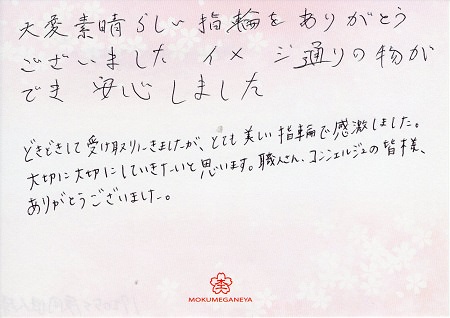 大変素晴らしい指輪をありがとう
ございました イメージ通りの物が
でき 安心しました
どきどきして受け取りにきましたが、とても美しい指輪で感激しました。
大切に大切にしていきたいと思います。職人さん、コンシェルジュの皆様、
ありがとうございました。
MOKUMEGANEYA